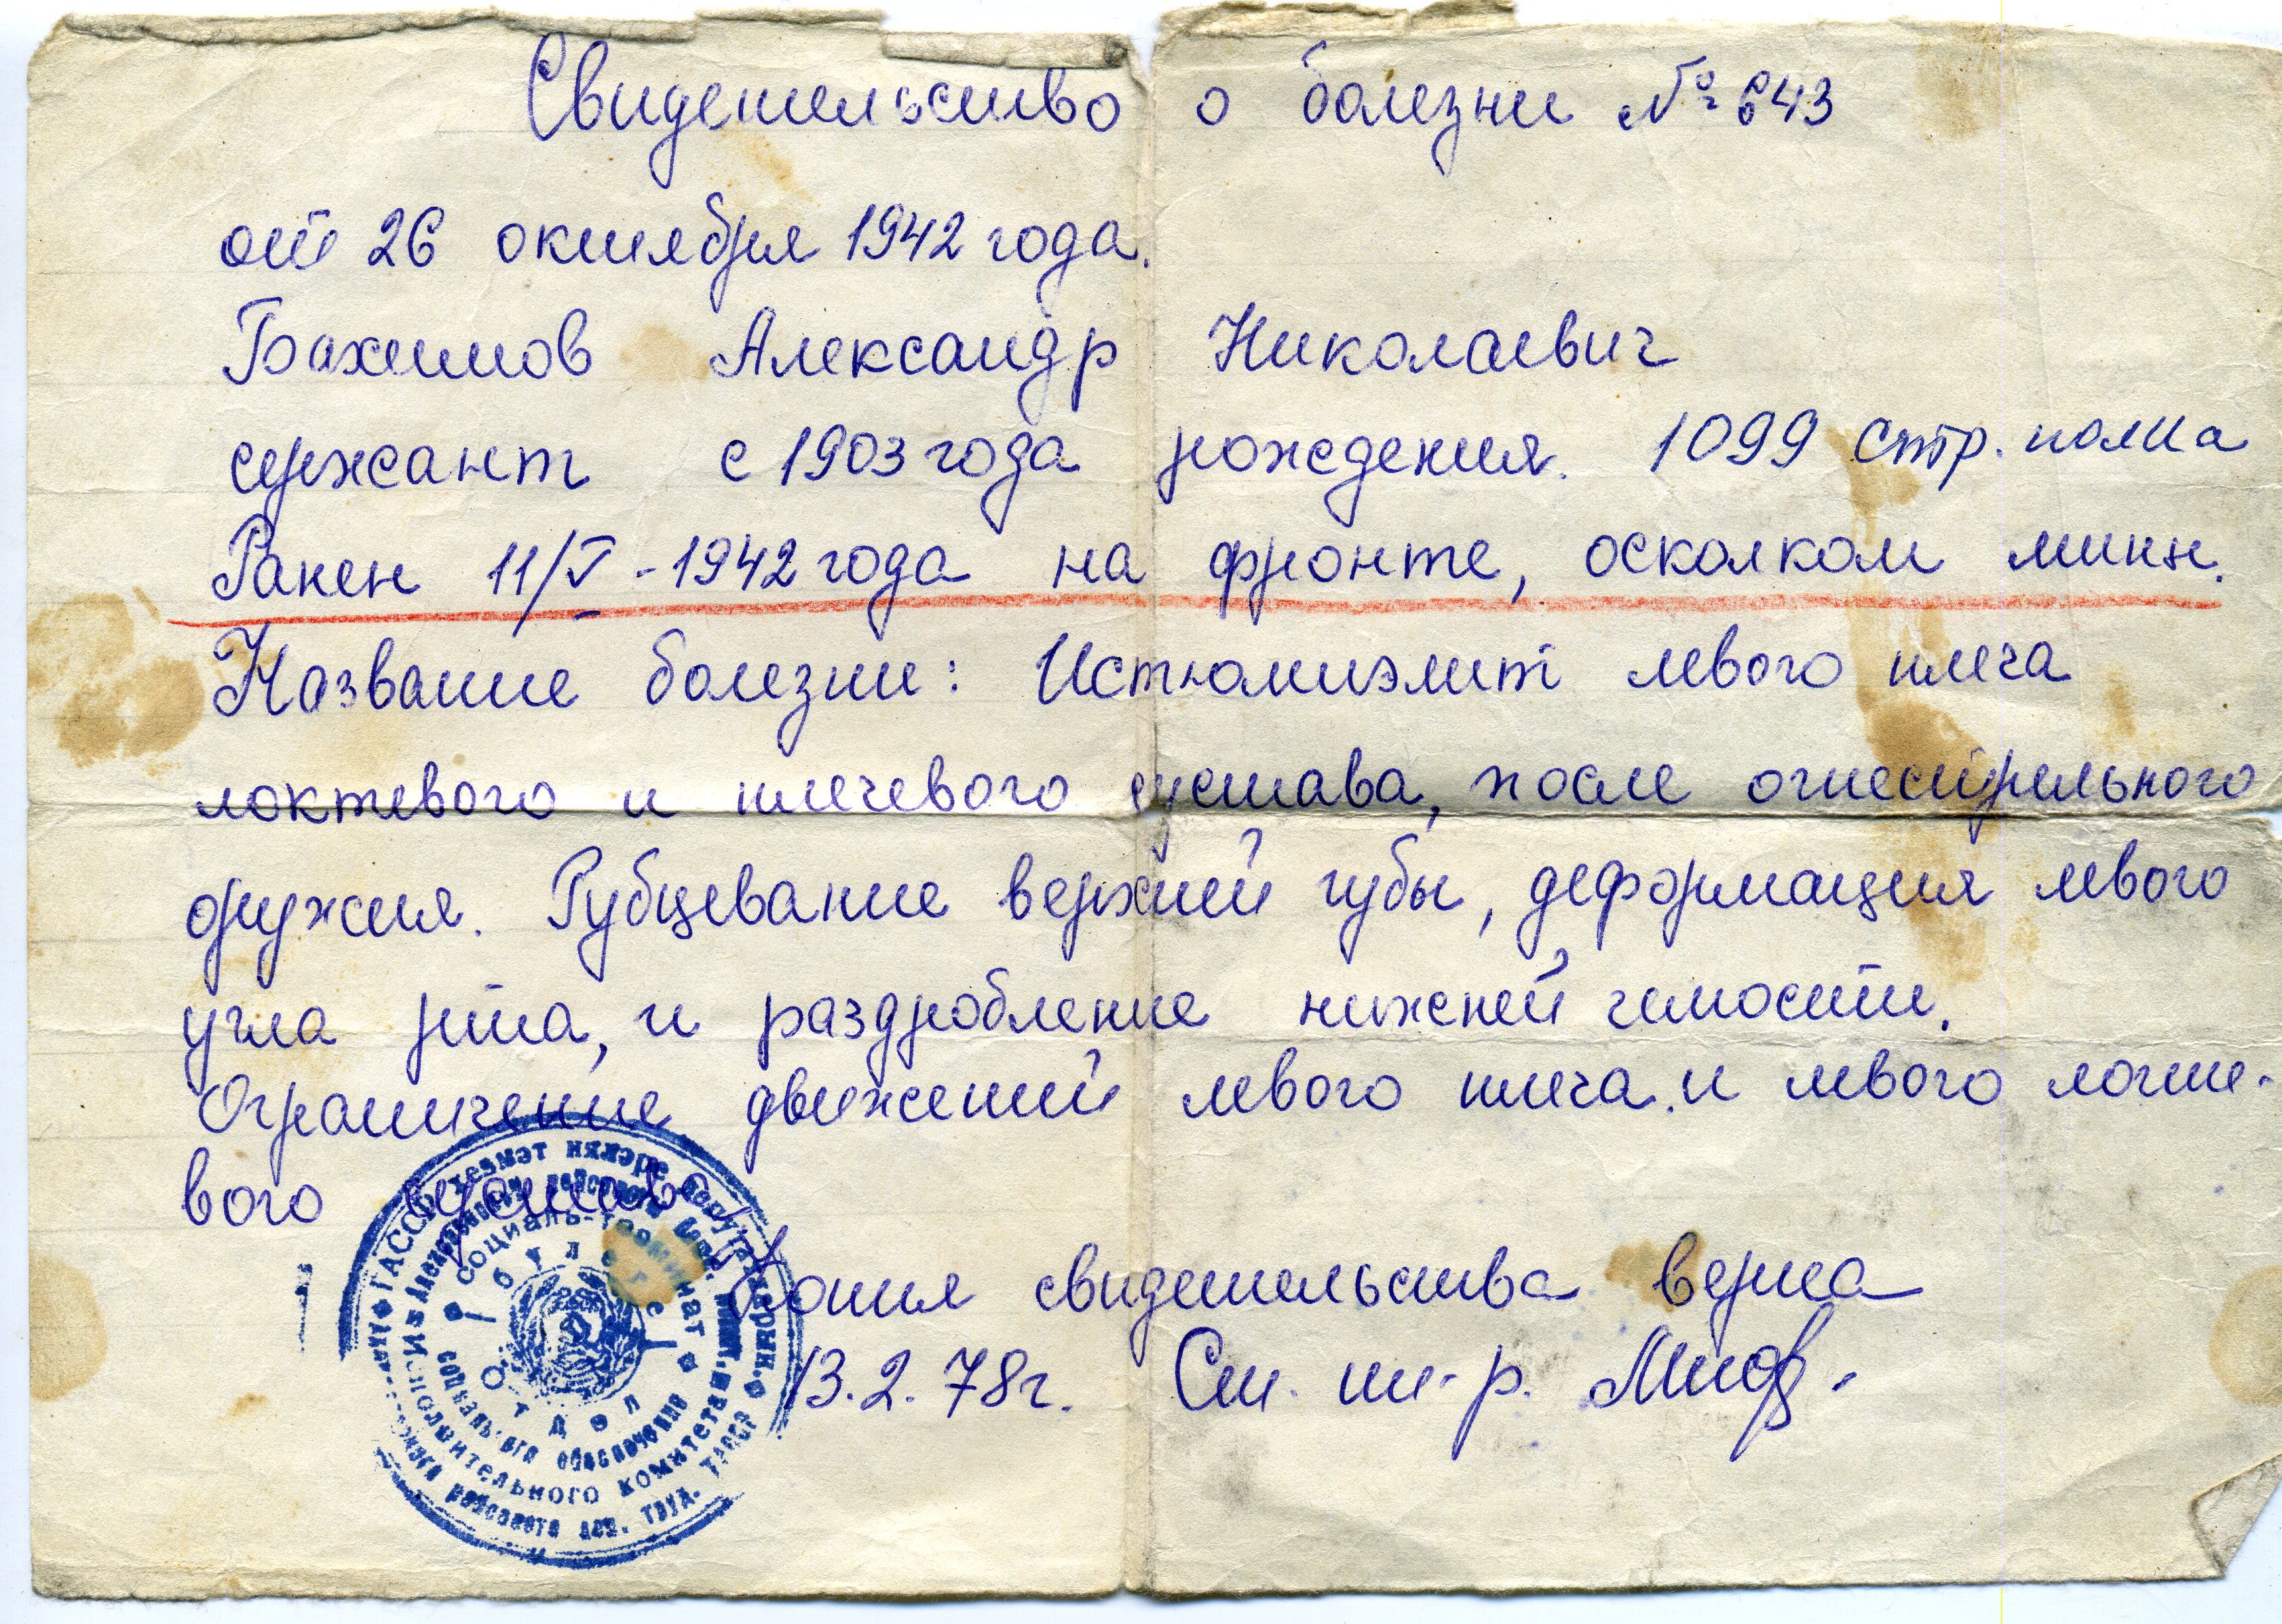 Свидетельство о болезни № 643
от 26 октября 1942 года.
Бахтиов Александр Николаевич
сержант с 1903 года рождения. 1099 стр. полка
Ранен 11/V - 1942 года на фронте, осколком мины.
Название болезни: Истюмиэлит левого плеча
локтевого и плечевого сустава, после огнестрельного
оружия. Рубцевание верхней губы, деформация левого
угла рта, и раздробление нижней челюсти.
Ограничение движений левого плеча и левого локте-
вого сустава
Копия свидетельства верна
13.2.78г. Ст. ин-р.
социаль-тееминат
бүлеге
Отдел
социального обеспечения
Исполнительного комитета
райсовета деп. труд. ТАССР